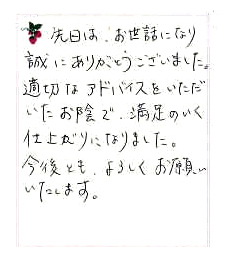 先日は、お世話になり
誠にありがとうございました。
適切なアドバイスをいただ
いたお陰で、満足のいく
仕上がりになりました。
今後とも、よろしくお願い
いたします。